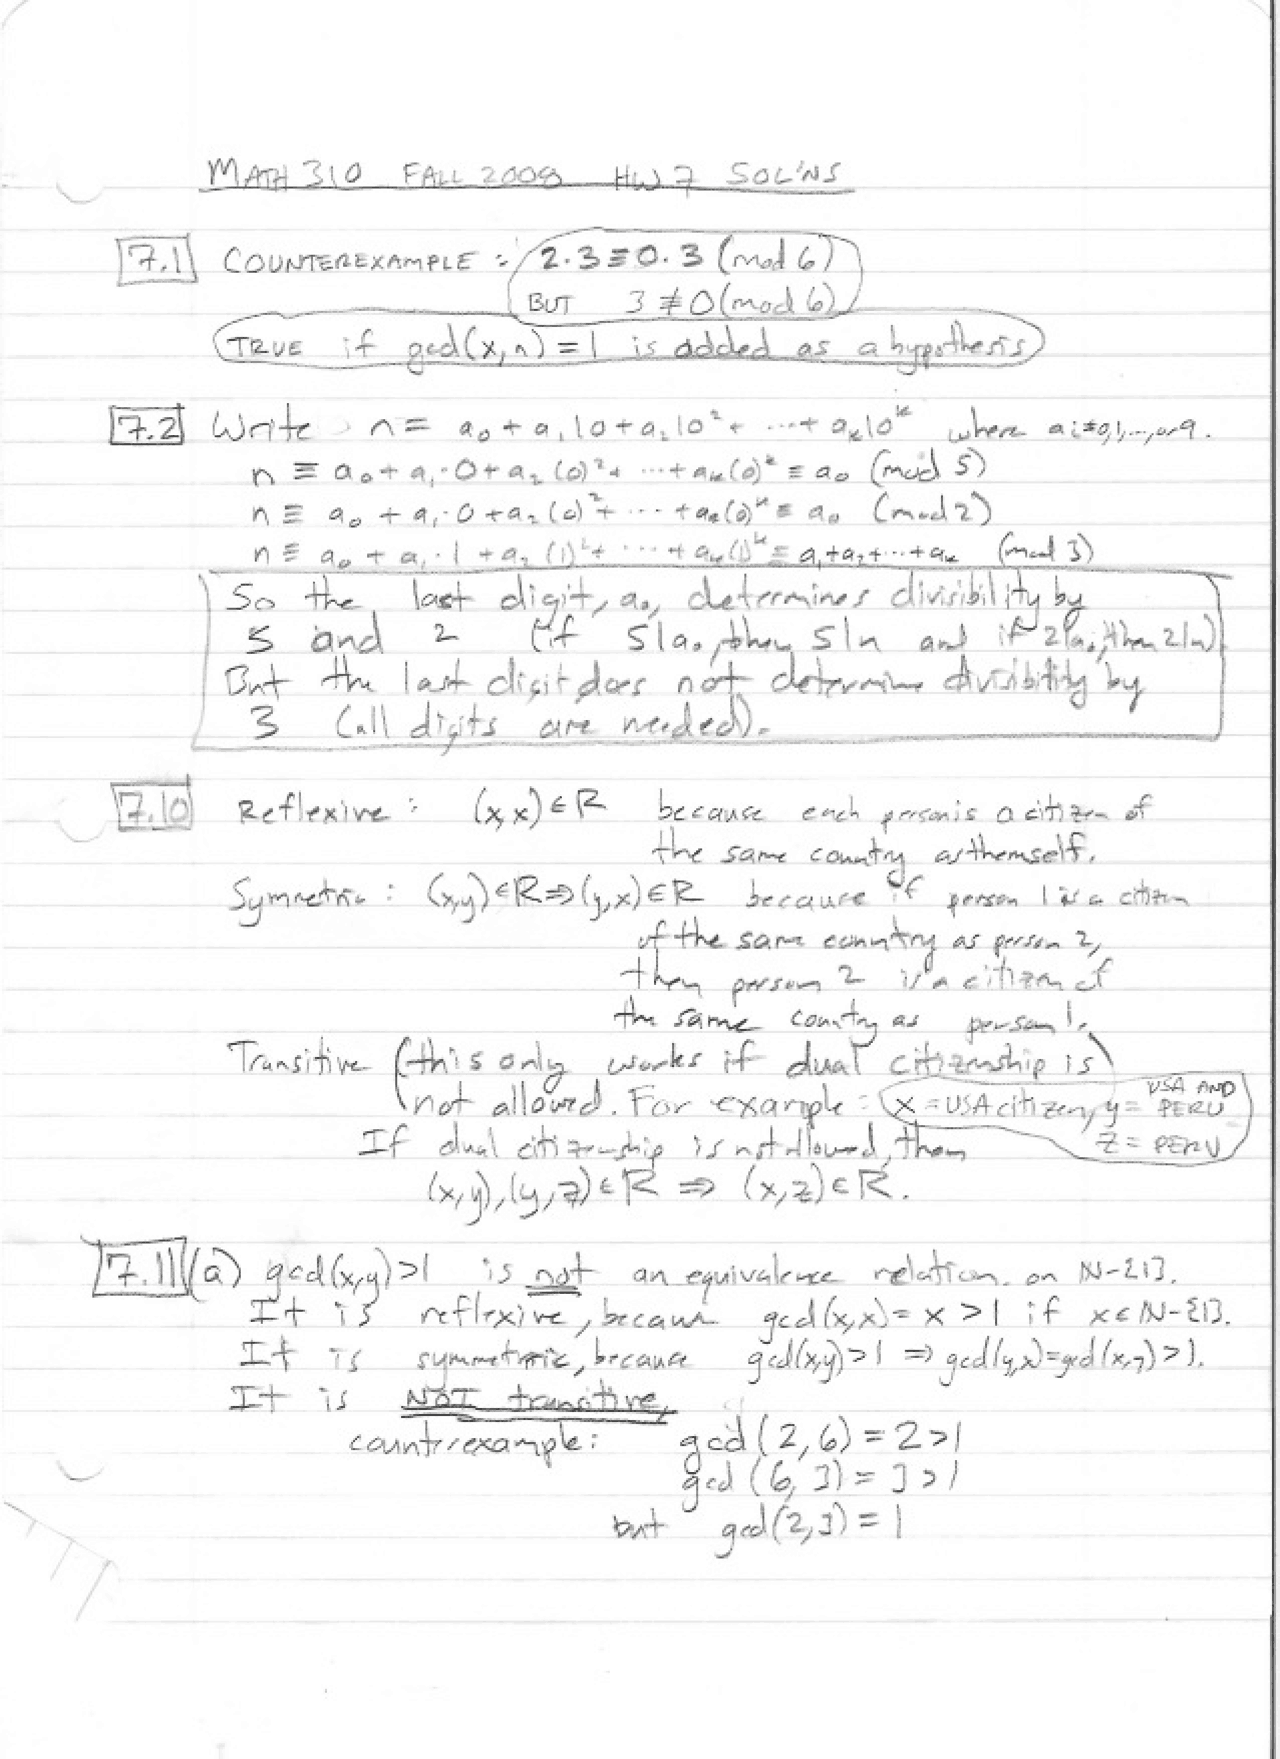 MATH 310 FALL 2008 HW 7 SOL'NS
7.1 COUNTEREXAMPLE : 2·3≡0·3 (mod 6)
BUT 3≢0 (mod 6)
TRUE if gcd(x,n)=1 is added as a hypothesis
7.2 Write n = a₀+a₁10+a₂10²+ ⋯+aₖ10ᵏ where aᵢ=0,1,...,or 9.
n ≡ a₀+a₁·0+a₂(0)²+ ⋯+aₖ(0)ᵏ ≡ a₀ (mod 5)
n ≡ a₀+a₁·0+a₂(0)²+ ⋯+aₖ(0)ᵏ ≡ a₀ (mod 2)
n ≡ a₀+a₁·1+a₂(1)²+ ⋯+aₖ(1)ᵏ ≡ a₁+a₂+⋯+aₖ (mod 3)
So the last digit, a₀, determines divisibility by
5 and 2 (if 5|a₀, then 5|n and if 2|a₀, then 2|n)
But the last digit does not determine divisibility by
3 (all digits are needed).
7.10 Reflexive : (x,x)∈R because each person is a citizen of
the same country as themself.
Symmetric : (x,y)∈R⇒(y,x)∈R because if person 1 is a citizen
of the same country as person 2,
then person 2 is a citizen of
the same country as person 1.
Transitive (this only works if dual citizenship is
not allowed. For example : x=USA citizen, y= USA AND PERU
z = PERU)
If dual citizenship is not allowed, then
(x,y),(y,z)∈R ⇒ (x,z)∈R.
7.11 (a) gcd(x,y)>1 is not an equivalence relation. on ℕ-{1}.
It is reflexive, because gcd(x,x)=x>1 if x∈ℕ-{1}.
It is symmetric, because gcd(x,y)>1 ⇒ gcd(y,x)=gcd(x,y)>1.
It is NOT transitive,
counterexample: gcd(2,6)=2>1
gcd(6,3)=3>1
but gcd(2,3)=1